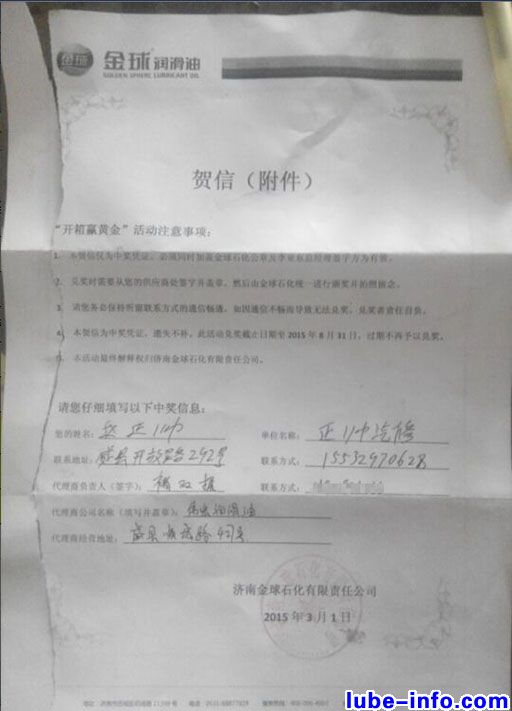 金球 金球 润滑油
GOLDEN SPHERE LUBRICANT OIL
贺信（附件）
“开箱赢黄金”活动注意事项：
1. 本贺信仅为中奖凭证，必须同时加盖金球石化公章及李亚东总经理签字方为有效。
2. 兑奖时需要从您的供应商处签字并盖章，然后由金球石化统一进行颁奖并拍照留念。
3. 请您务必保持所留联系方式的通信畅通，如因通信不畅而导致无法兑奖，兑奖者责任自负。
4. 本贺信为中奖凭证，遗失不补。此活动兑奖截止日期至 2015 年 8 月 31 日，过期不再予以兑奖。
5. 本活动最终解释权归济南金球石化有限责任公司。
请您仔细填写以下中奖信息：
您的姓名： 单位名称： 正帅汽修
联系地址： 盛县开放路292号 联系方式： 15532970628
代理商负责人（签字）： 联系方式：
代理商公司名称（填写并盖章）： 润滑油
代理商经营地址：
济南金球石化有限责任公司
2015 年 3 月 1 日
lube-info.com